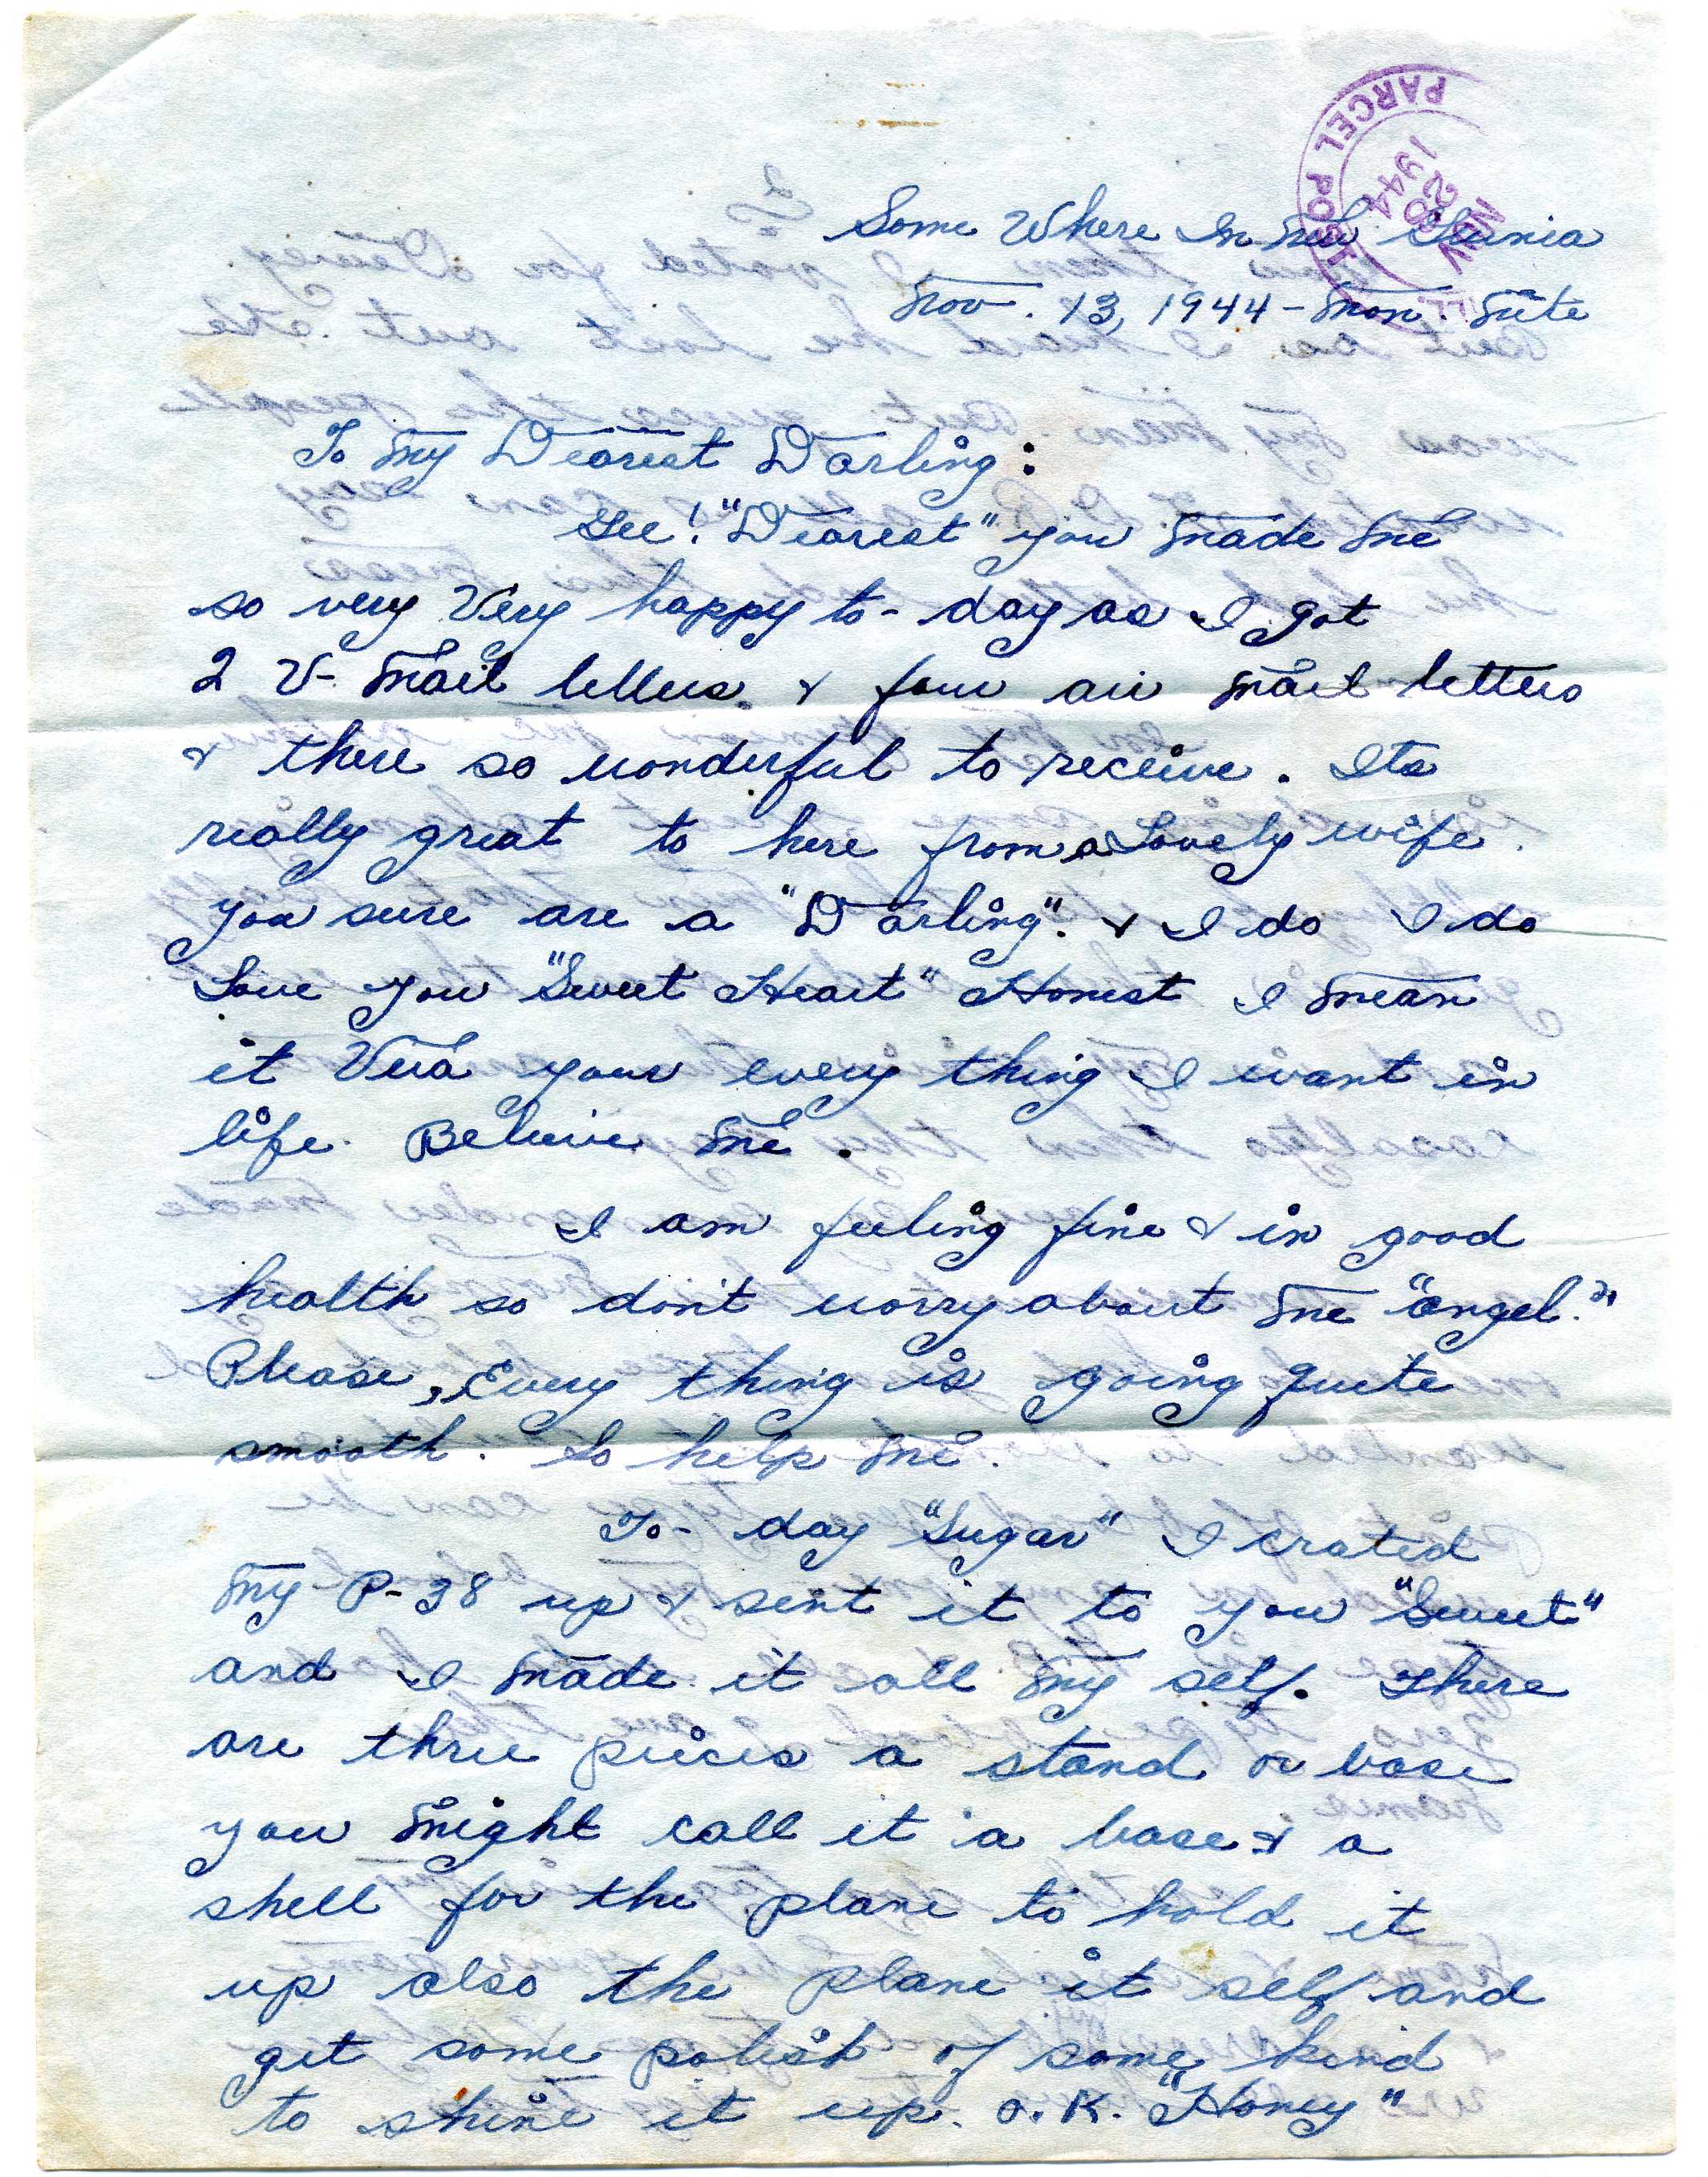 PARCEL POST
NOV 28 1944
Some Where In New Gunia
Nov. 13, 1944 - Mon. Nite
To My Dearest Darling:
Gee! "Dearest" you made me
so very Very happy to-day as I got
2 V-Mail letters. & four air mail letters
& there so wonderful to receive. Its
really great to here from a Lovely wife.
you sure are a "Darling". & I do I do
Love you "Sweet Heart" Honest I mean
it Vera your every thing I want in
life. Believe me.
I am feeling fine & in good
health so don't worry about me "angel."
Please, Every thing is going quite
smooth. So help me.
To-day "Sugar" I crated
my P-38 up & sent it to you "Sweet"
and I made it all my self. There
are three pieces a stand or base
you might call it a base & a
shell for the plane to hold it
up also the plane it self and
get some polish of some kind
to shine it up. O.K. "Honey"